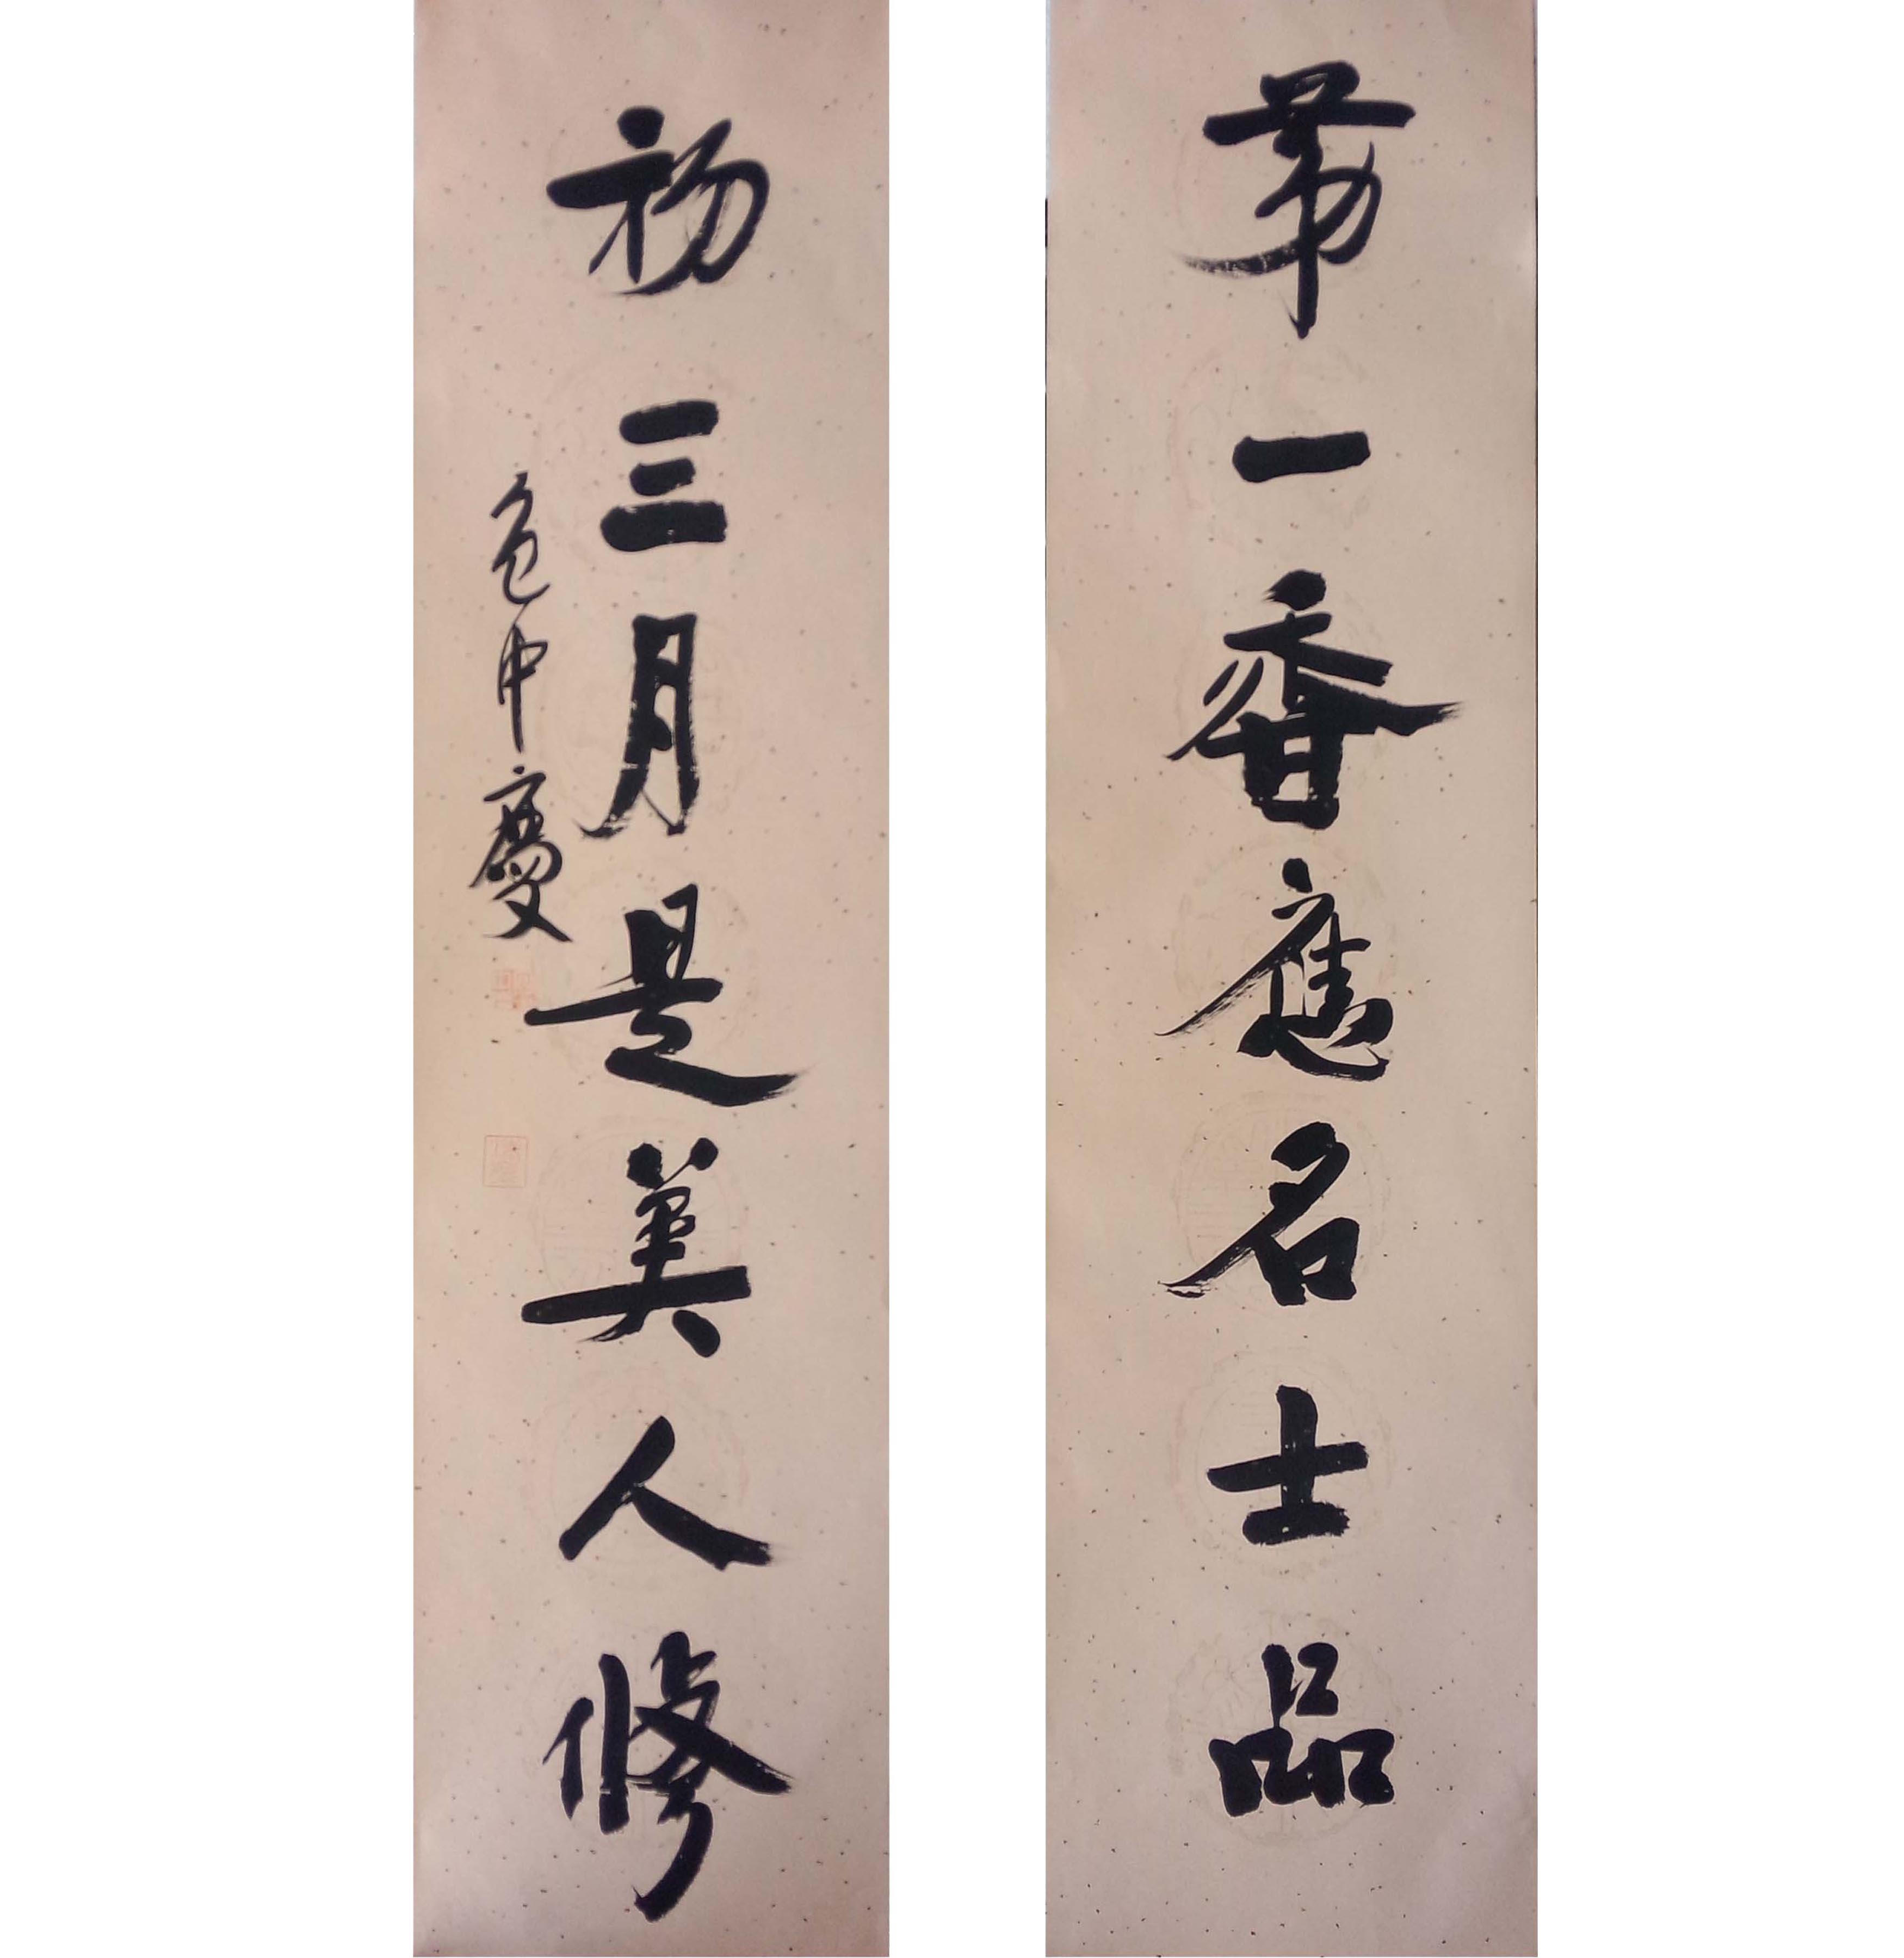 第一香應名士品
初三月是美人修
色中慶